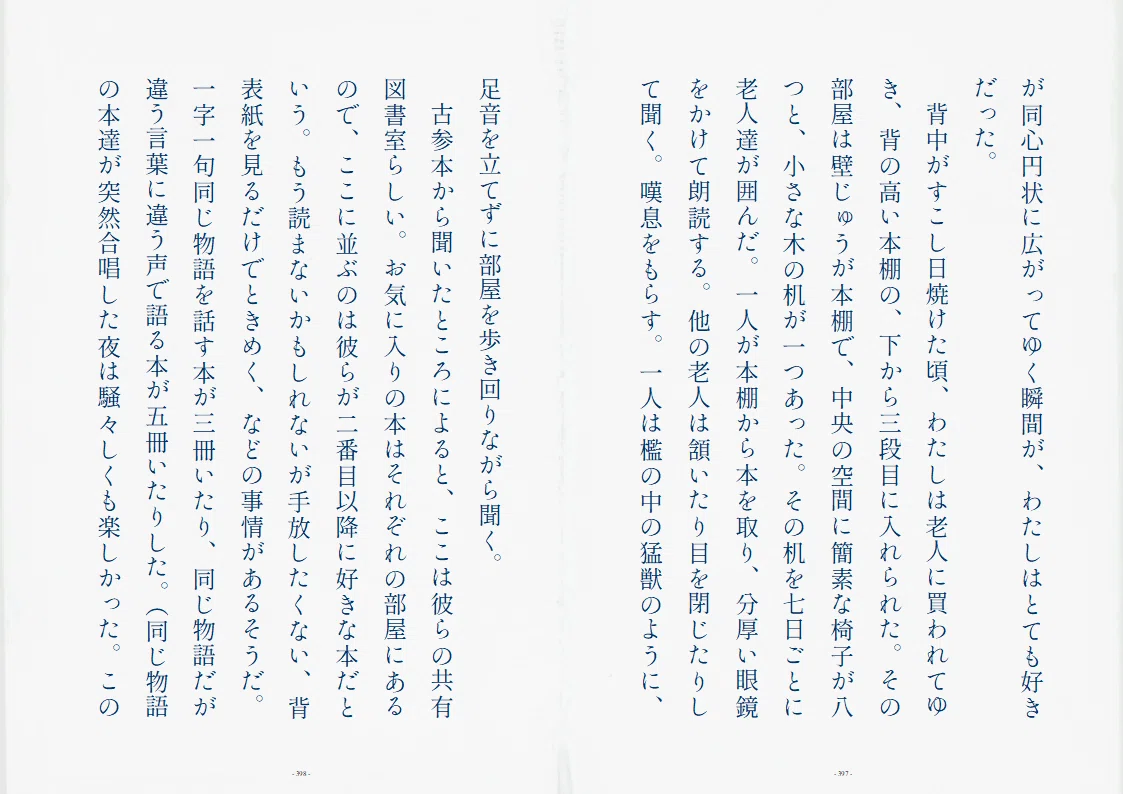 が同心円状に広がってゆく瞬間が、わたしはとても好き
だった。
背中がすこし日焼けた頃、わたしは老人に買われてゆ
き、背の高い本棚の、下から三段目に入れられた。その
部屋は壁じゅうが本棚で、中央の空間に簡素な椅子が八
つと、小さな木の机が一つあった。その机を七日ごとに
老人達が囲んだ。一人が本棚から本を取り、分厚い眼鏡
をかけて朗読する。他の老人は頷いたり目を閉じたりし
て聞く。嘆息をもらす。一人は檻の中の猛獣のように、
- 397 -
足音を立てずに部屋を歩き回りながら聞く。
古参本から聞いたところによると、ここは彼らの共有
図書室らしい。お気に入りの本はそれぞれの部屋にある
ので、ここに並ぶのは彼らが二番目以降に好きな本だと
いう。もう読まないかもしれないが手放したくない、背
表紙を見るだけでときめく、などの事情があるそうだ。
一字一句同じ物語を話す本が三冊いたり、同じ物語だが
違う言葉に違う声で語る本が五冊いたりした。(同じ物語
の本達が突然合唱した夜は騒々しくも楽しかった。この
- 398 -